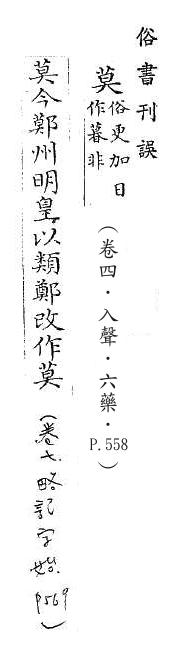 俗書刊誤
莫 俗更加日
作暮非
（卷四・入聲・六藥・P.558）
莫今鄭州明皇以類鄭改作莫（卷七略記字始 p569）